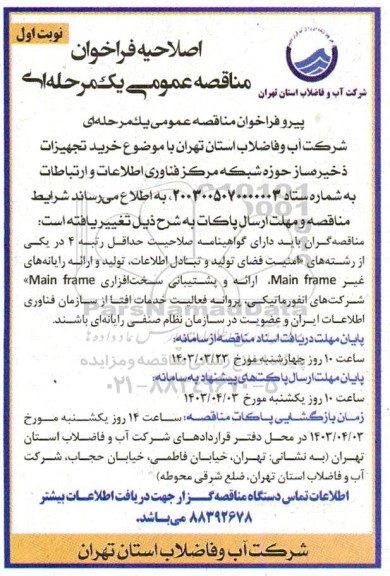 نوبت اول
اصلاحیه فراخوان
مناقصه عمومی یک‌مرحله‌ای
شرکت آب و فاضلاب استان تهران
پیرو فراخوان مناقصه عمومی یک‌مرحله‌ای
شرکت آب وفاضلاب استان تهران با موضوع خرید تجهیزات
ذخیره‌ساز حوزه شبکه مرکز فناوری اطلاعات و ارتباطات
به شماره ستاد ۲۰۰۳۰۰۵۰۷۰۰۰۰۰۰۳، به اطلاع می‌رساند شرایط
مناقصه و مهلت ارسال پاکات به شرح ذیل تغییر یافته است:
مناقصه‌گران باید دارای گواهینامه صلاحیت حداقل رتبه ۴ در یکی
از رشته‌های «امنیت فضای تولید و تبادل اطلاعات، تولید و ارائه رایانه‌های
غیر Main frame، ارائه و پشتیبانی سخت‌افزاری Main frame»
شرکت‌های انفورماتیکی، پروانه فعالیت خدمات افتا از سازمان فناوری
اطلاعات ایران و عضویت در سازمان نظام صنفی رایانه‌ای باشند.
پایان مهلت دریافت اسناد مناقصه از سامانه:
ساعت ۱۰ روز چهارشنبه مورخ ۱۴۰۳/۰۳/۲۳
پایان مهلت ارسال پاکت‌های پیشنهاد به سامانه:
ساعت ۱۰ روز یکشنبه مورخ ۱۴۰۳/۰۴/۰۳
زمان بازگشایی پاکات مناقصه: ساعت ۱۴ روز یکشنبه مورخ
۱۴۰۳/۰۴/۰۳ در محل دفتر قراردادهای شرکت آب و فاضلاب استان
تهران (به نشانی: تهران، خیابان فاطمی، خیابان حجاب، شرکت
آب و فاضلاب استان تهران، ضلع شرقی محوطه)
اطلاعات تماس دستگاه مناقصه‌گزار جهت دریافت اطلاعات بیشتر
۸۸۳۹۲۶۷۸ می‌باشد.
شرکت آب و فاضلاب استان تهران